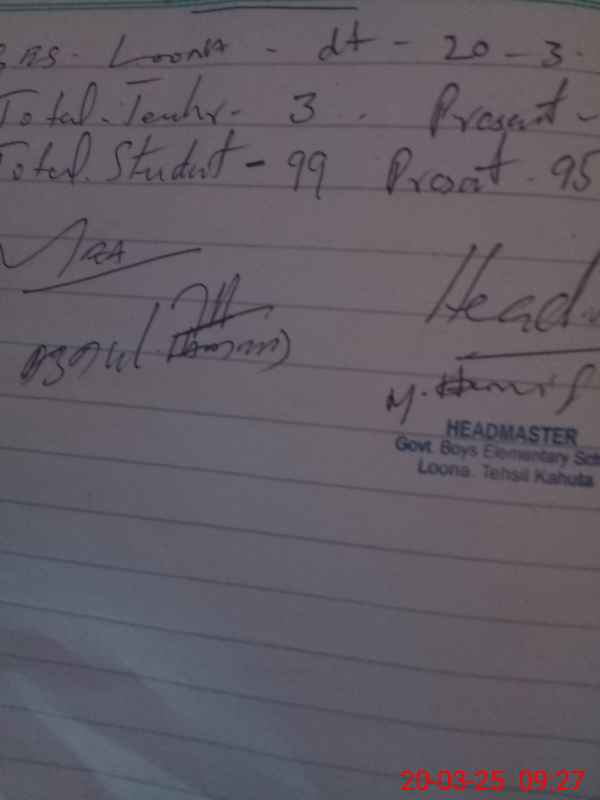 Loona - dt - 20 - 3.
Total. Teachr - 3. Present -
Total. Student - 99 Present. 95
Head
M. Hanif
HEADMASTER
Govt. Boys Elementary Sch
Loona. Tehsil Kahuta
20-03-25 09:27